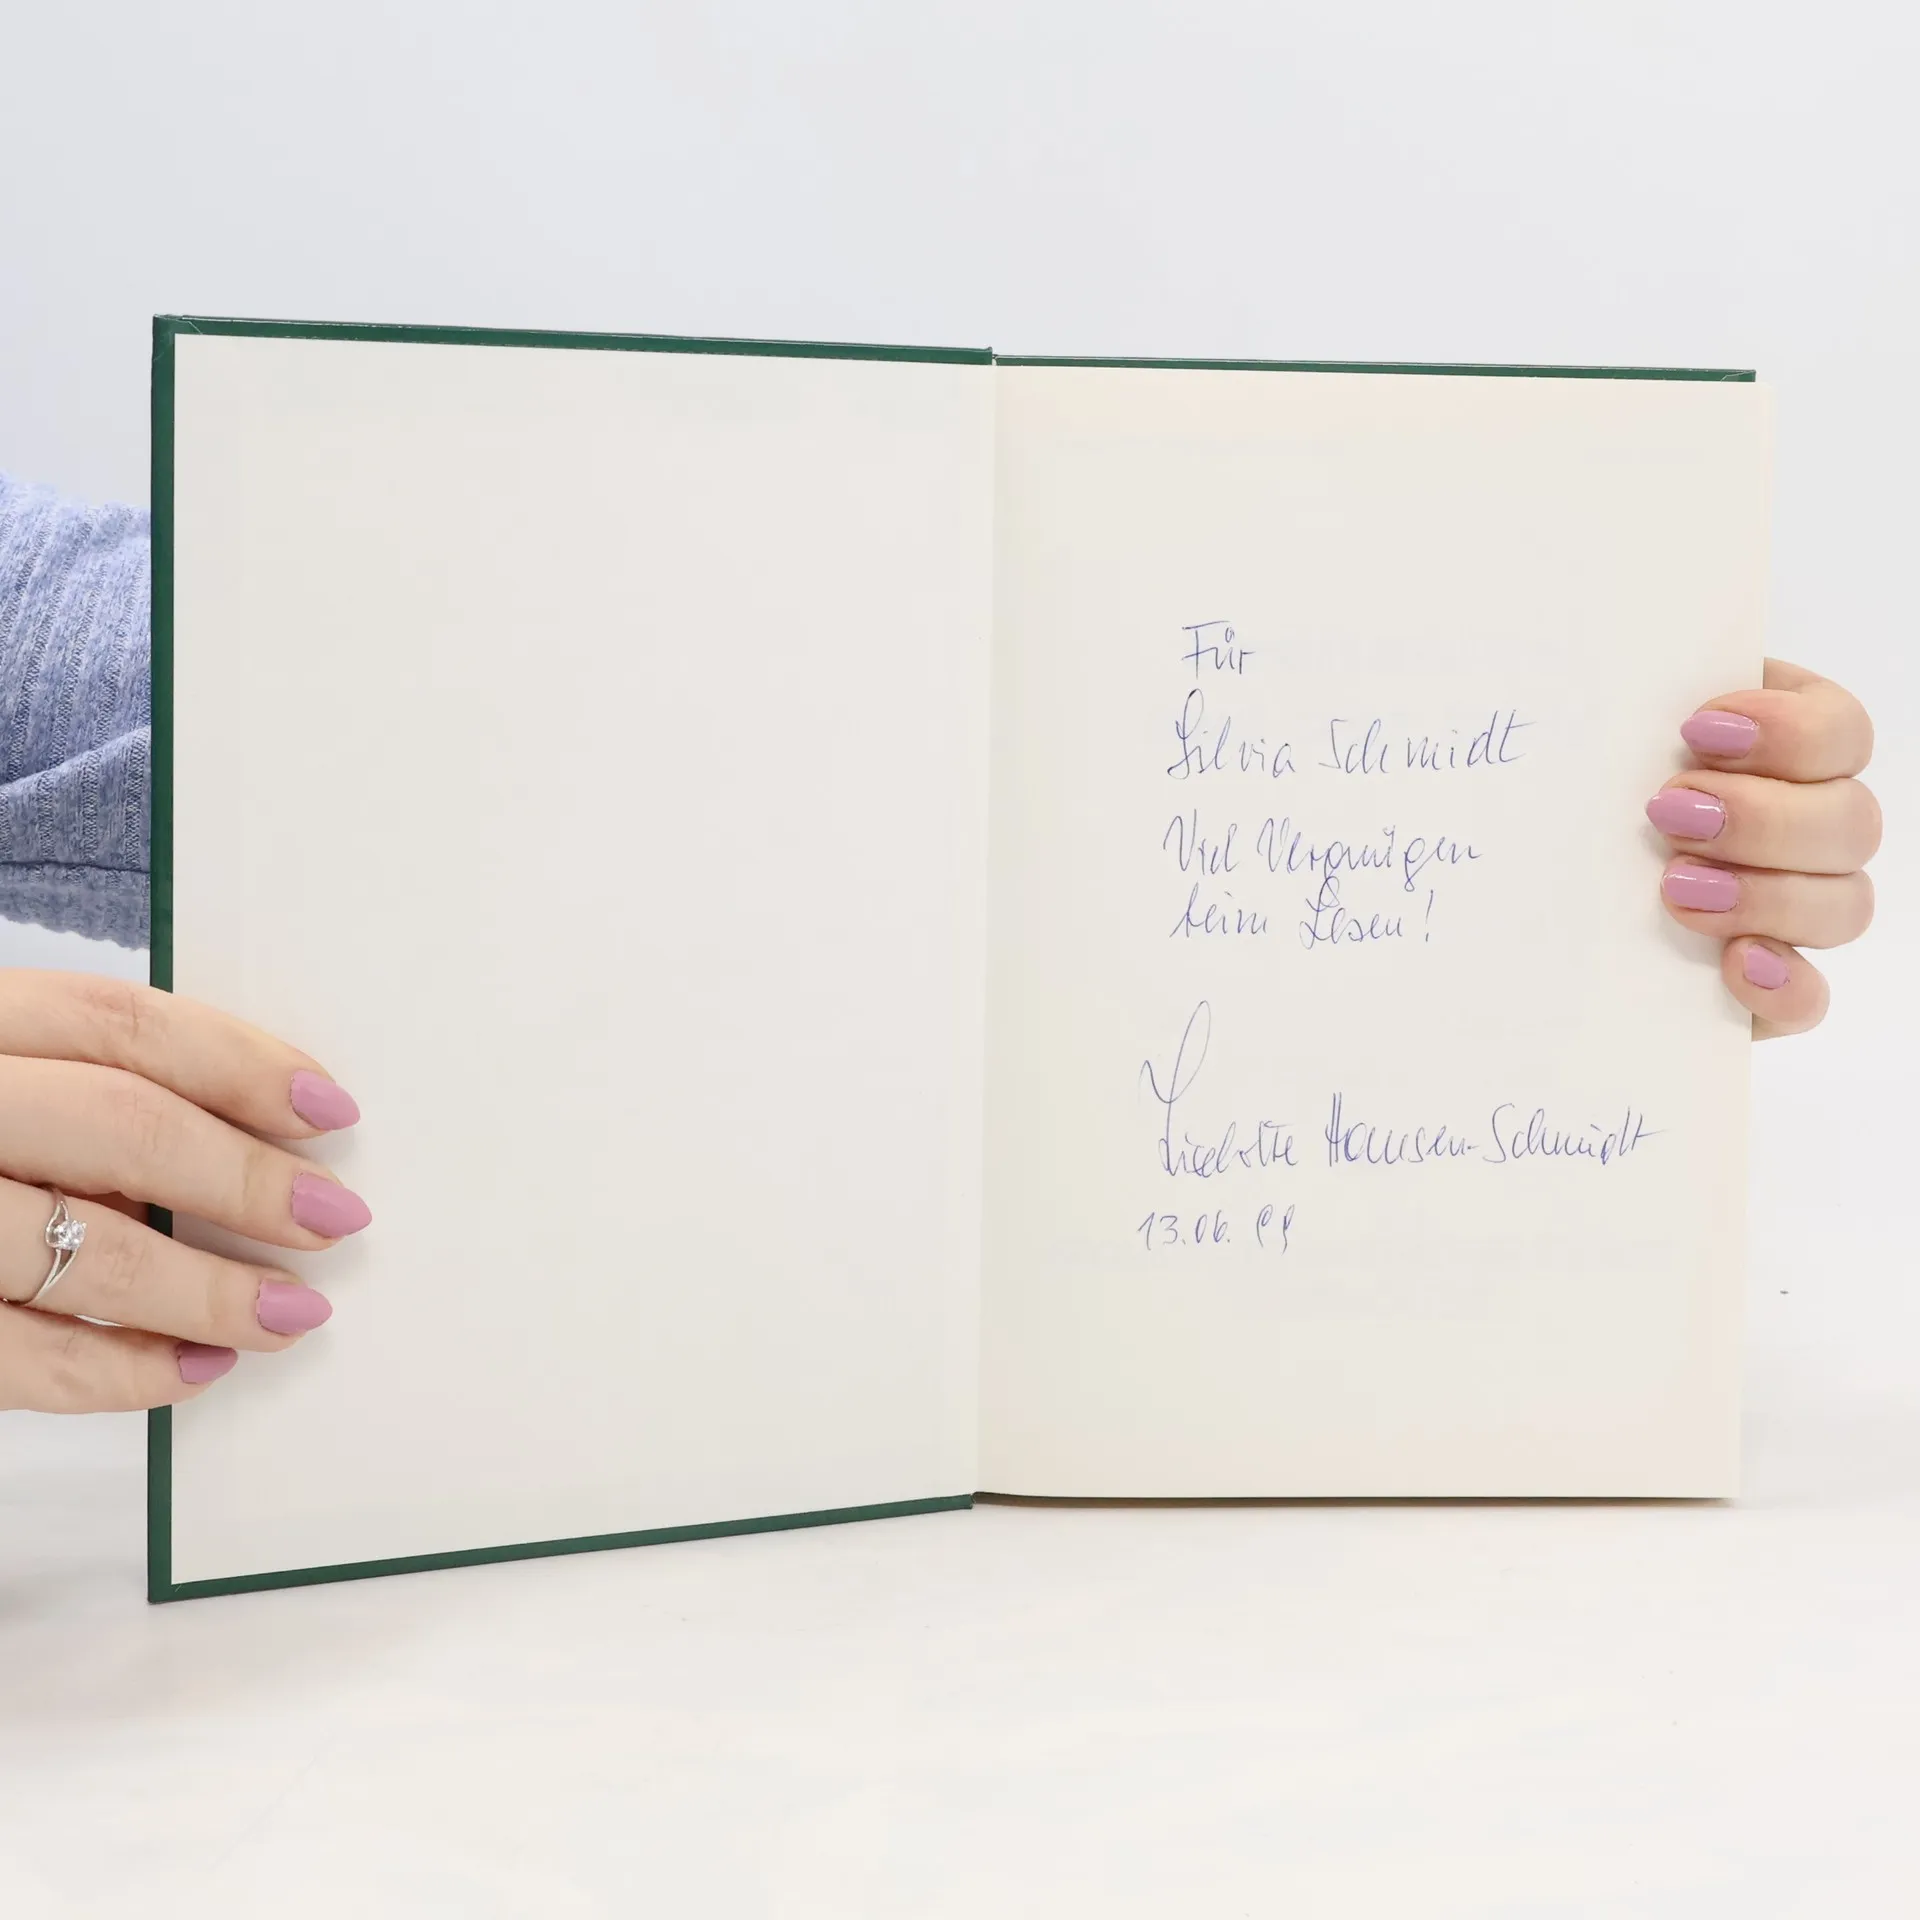 Für
Silvia Schmidt
Viel Vergnügen
beim Lesen!
Liselotte Hansen-Schmidt
13.06.99